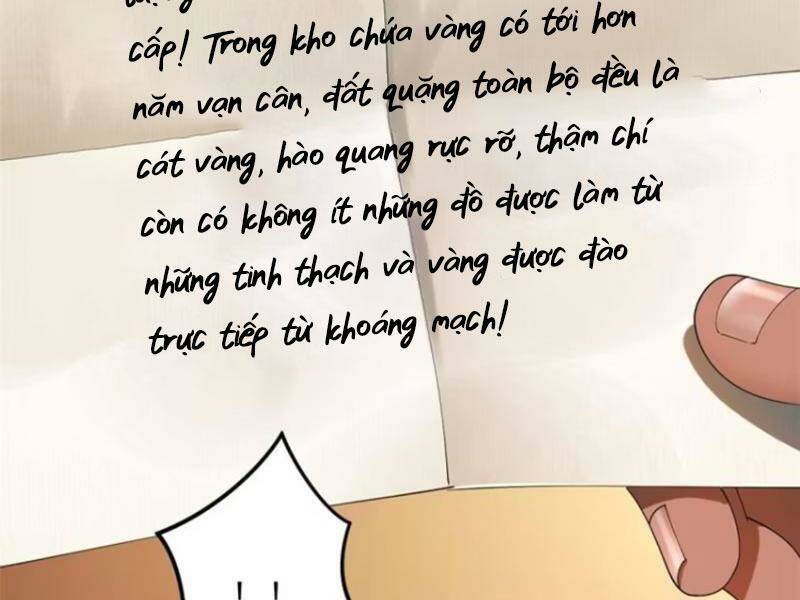 cấp! Trong kho chứa vàng có tới hơn
năm vạn cân, đất quặng toàn bộ đều là
cát vàng, hào quang rực rỡ, thậm chí
còn có không ít những đồ được làm từ
những tinh thạch và vàng được đào
trực tiếp từ khoáng mạch!